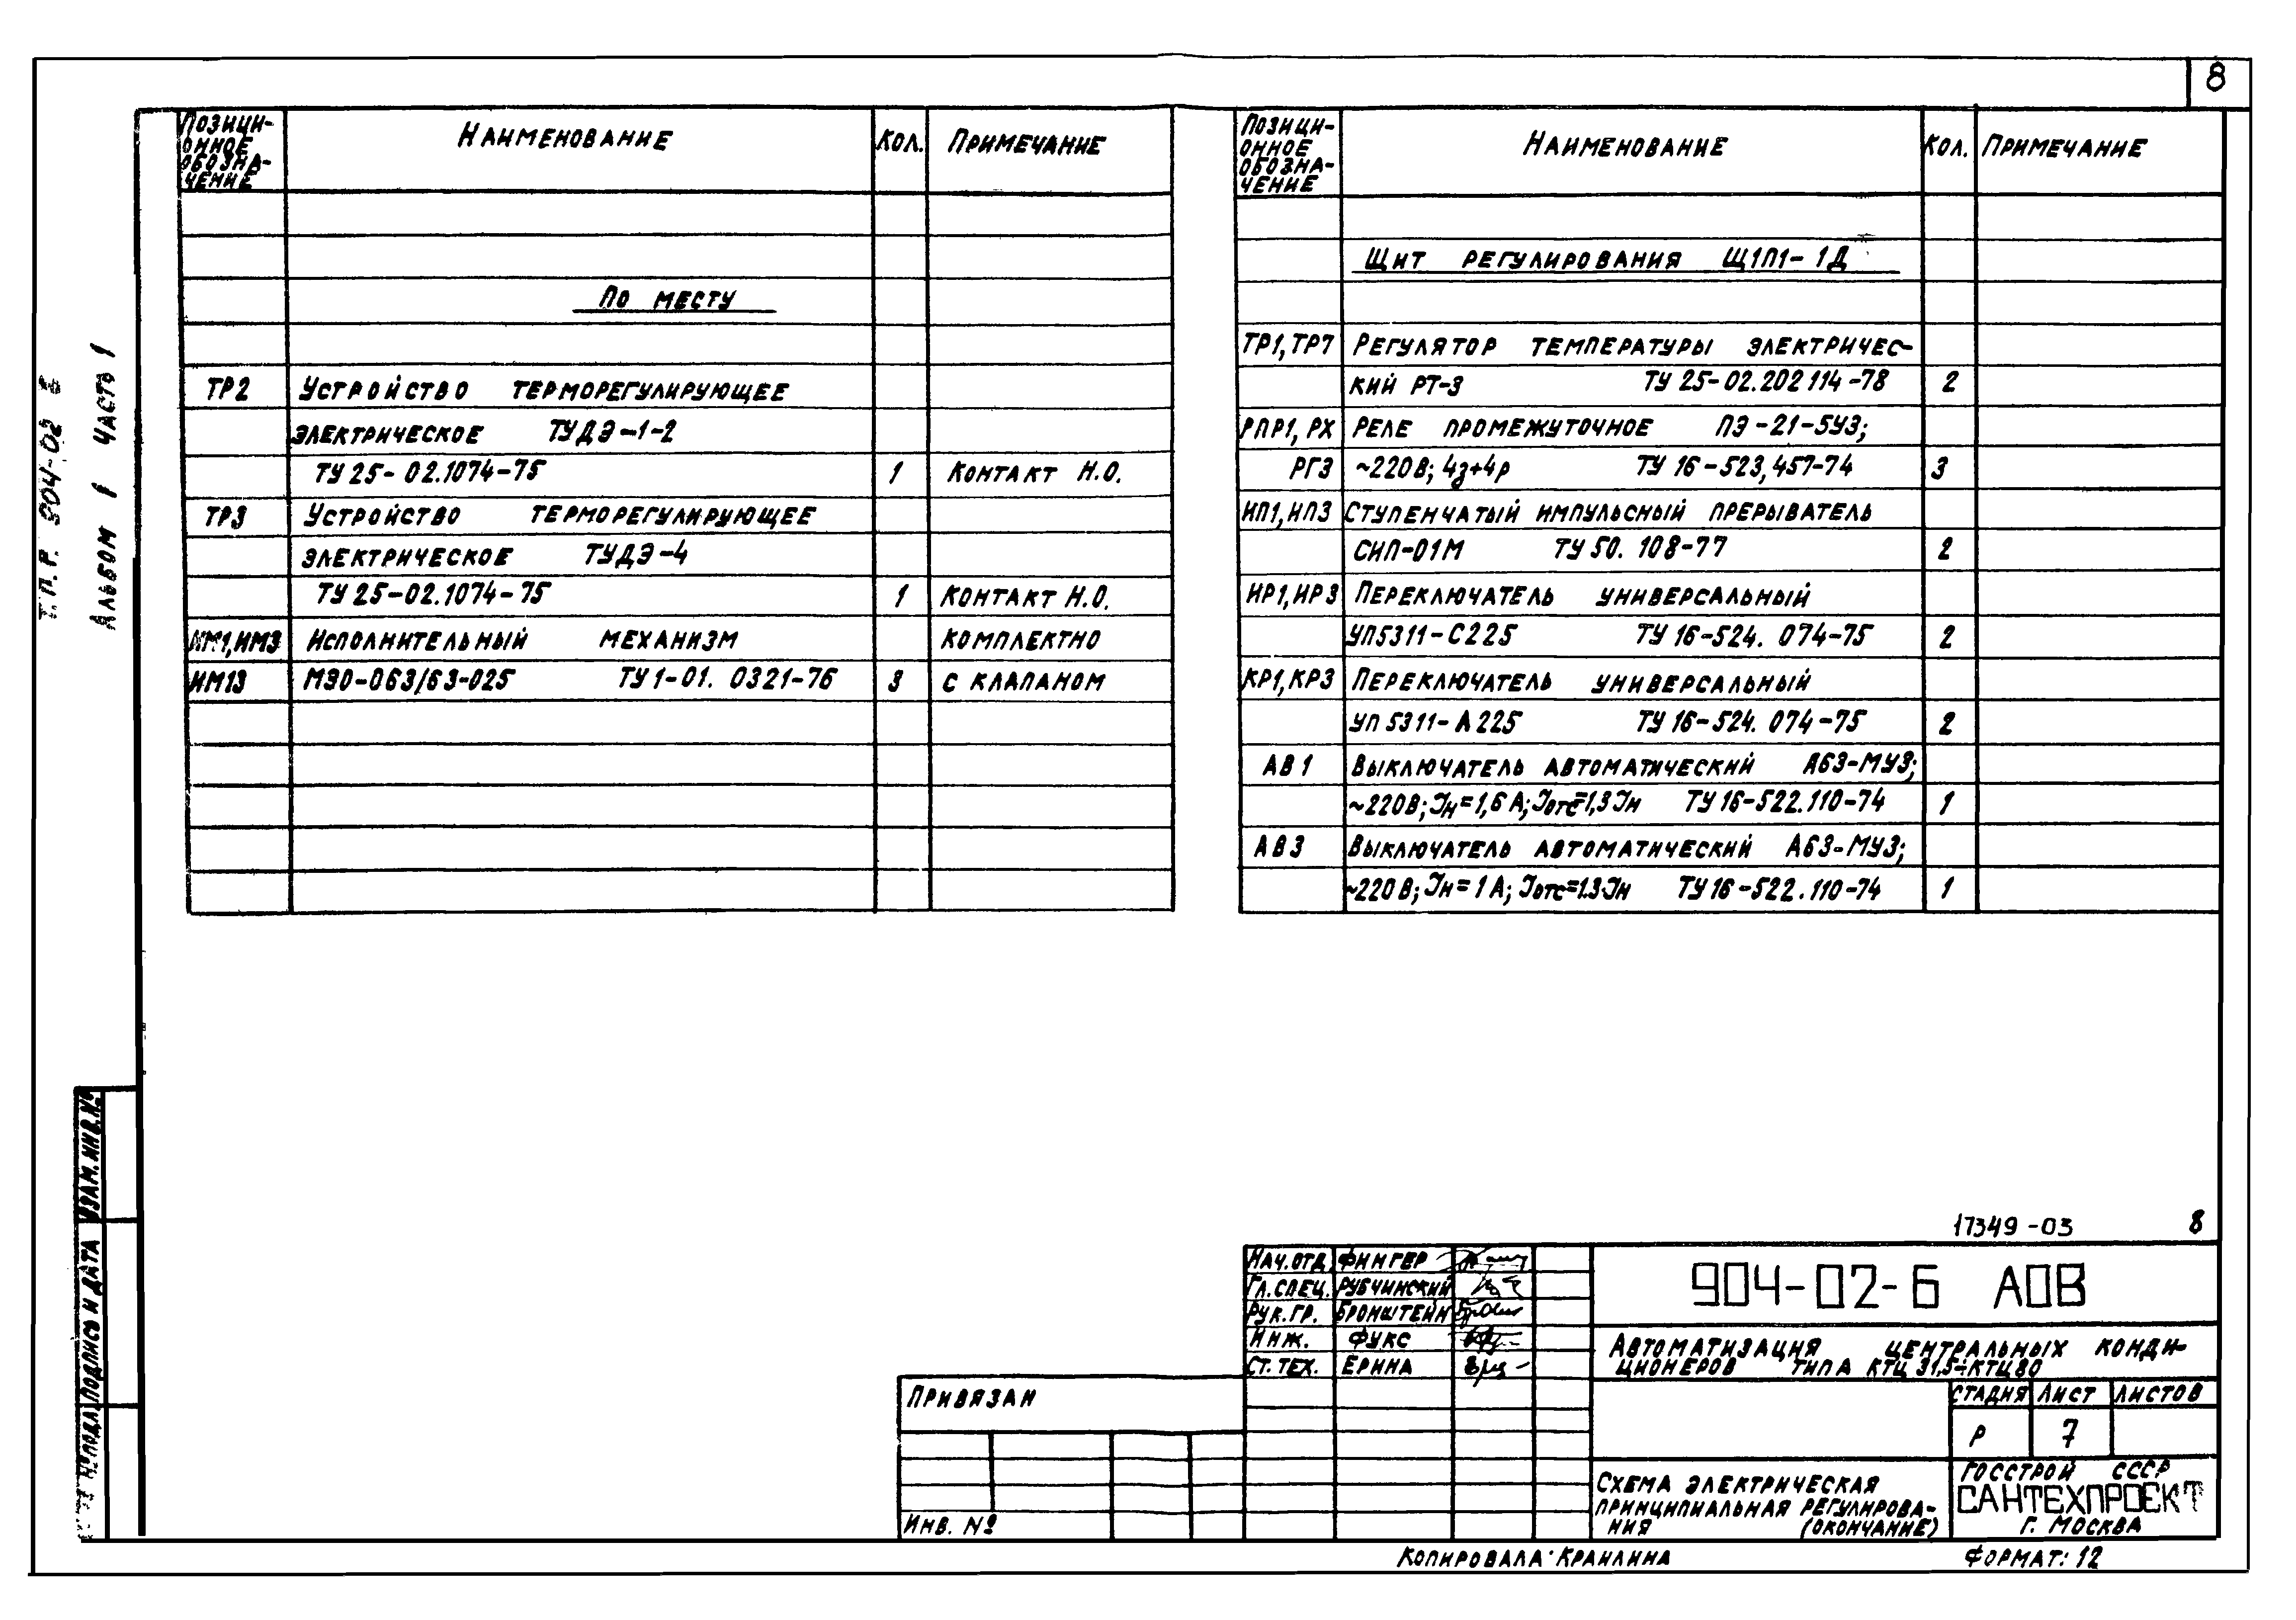 8
Т.П.Р. 904-02-6
Альбом I Часть 1
Позици- Наименование Кол. Примечание
онное
обозна-
чение
По месту
ТР2 Устройство терморегулирующее
электрическое ТУДЭ-1-2
ТУ 25-02.1074-75 1 Контакт Н.О.
ТР3 Устройство терморегулирующее
электрическое ТУДЭ-4
ТУ 25-02.1074-75 1 Контакт Н.О.
ИМ1,ИМ3 Исполнительный механизм комплектно
ИМ13 МЭО-063/63-025 ТУ 1-01.0321-76 3 с клапаном
Позици- Наименование Кол. Примечание
онное
обозна-
чение
Щит регулирования Щ1П1-1Д
ТР1,ТР7 Регулятор температуры электричес-
кий РТ-3 ТУ 25-02.202114-78 2
РПР1,РХ Реле промежуточное ПЭ-21-5У3;
РГ3 ~220В; 4з+4р ТУ 16-523,457-74 3
ИП1,ИП3 Ступенчатый импульсный прерыватель
СИП-01М ТУ 50.108-77 2
ИР1,ИР3 Переключатель универсальный
УП5311-С225 ТУ 16-524.074-75 2
КР1,КР3 Переключатель универсальный
УП5311-А225 ТУ 16-524.074-75 2
АВ1 Выключатель автоматический А63-МУ3;
~220В; Iн=1,6А; Iотс=1,3Iн ТУ 16-522.110-74 1
АВ3 Выключатель автоматический А63-МУ3;
~220В; Iн=1А; Iотс=1.3Iн ТУ 16-522.110-74 1
Взам.инв.№
Подпись и дата
№ подл.
17349-03 8
Нач.отд. Фингер
Гл.спец. Рубчинский
Рук.гр. Бронштейн
Инж. Фукс
Ст.тех. Ерина
904-02-6 АОВ
Автоматизация центральных конди-
ционеров типа КТЦ 31,5÷КТЦ80
Стадия Лист Листов
Р 7
Схема электрическая
принципиальная регулирова-
ния (окончание)
Госстрой СССР
САНТЕХПРОЕКТ
г. Москва
Привязан
Инв. №
Копировала: Краилина
Формат: 12